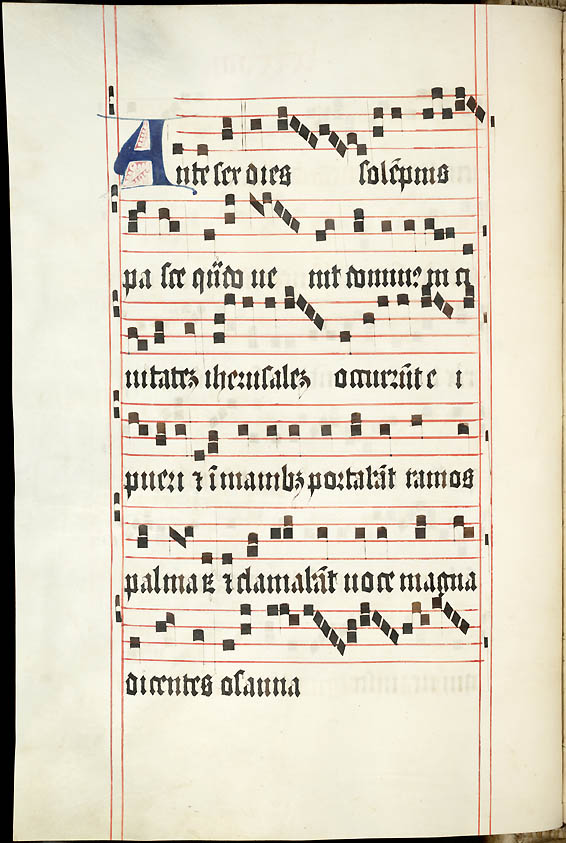 Ante sex dies solēpnis
pasce qn̄do uenit domin⁹ in ci
uitatez iherusalez occurrūt ei
pueri ⁊ ī manibꝫ portabāt ramos
palmaꝝ ⁊ clamabāt uoce magna
dicentes osanna